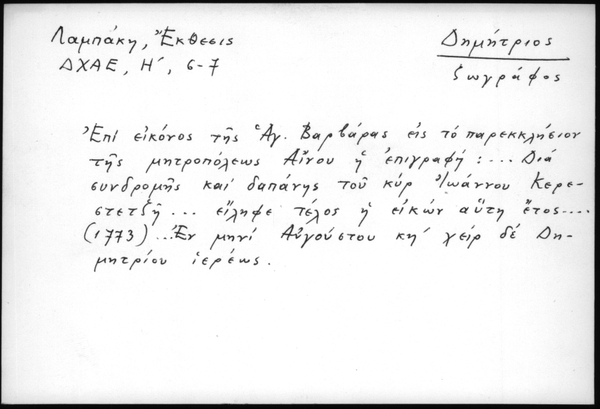 Λαμπάκη, Ἔκθεσις
ΔΧΑΕ, Η΄, 6-7
Δημήτριος
ζωγράφος
Ἐπί εἰκόνος τῆς Ἁγ. Βαρβάρας εἰς τό παρεκκλήσιον
τῆς μητροπόλεως Αἴνου ἡ ἐπιγραφή: ... Διά
συνδρομῆς καί δαπάνης τοῦ κύρ Ἰωάννου Κερε-
στετζῆ ... εἴληφε τέλος ἡ εἰκών αὕτη ἔτος ....
(1773) ... Ἐν μηνί Αὐγούστου κη΄ χείρ δέ Δη-
μητρίου ἱερέως.